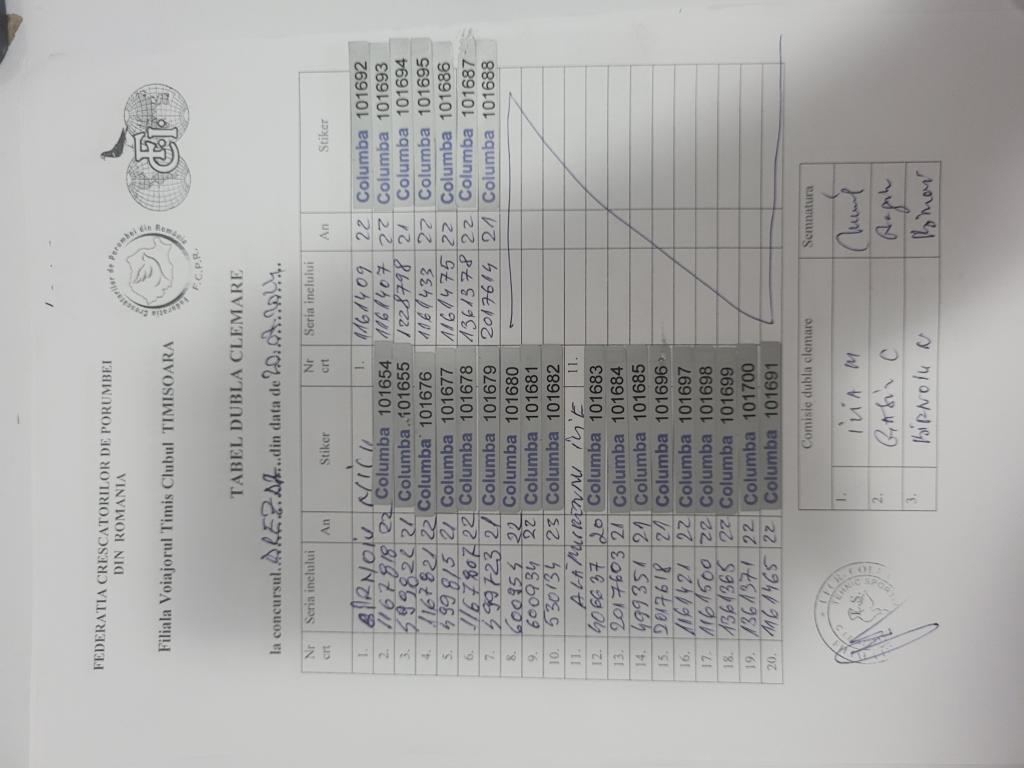 FEDERATIA CRESCATORILOR DE PORUMBEI
DIN ROMANIA
Filiala Voiajorul Timis Clubul TIMISOARA
Federatia Crescatorilor de Porumbei din România
F.C.P.R.
FCI
TABEL DUBLA CLEMARE
la concursul din data de
Nr crt Seria inelului An Stiker Nr crt Seria inelului An Stiker
1. 1. 1161409 22 Columba 101692
2. 1167918 22 Columba 101654 1161407 22 Columba 101693
3. 599822 21 Columba 101655 1228798 21 Columba 101694
4. 1167821 22 Columba 101676 1161433 22 Columba 101695
5. 599815 21 Columba 101677 1161475 22 Columba 101686
6. 1167807 22 Columba 101678 1361378 22 Columba 101687
7. 599723 21 Columba 101679 2017614 21 Columba 101688
8. 660954 22 Columba 101680
9. 660934 22 Columba 101681
10. 530134 23 Columba 101682
11. 11.
12. 406637 20 Columba 101683
13. 2017603 21 Columba 101684
14. 499351 21 Columba 101685
15. 2017618 21 Columba 101696
16. 1161421 22 Columba 101697
17. 1161500 22 Columba 101698
18. 1361365 22 Columba 101699
19. 1361371 22 Columba 101700
20. 1161465 22 Columba 101691
Comisie dubla clemare Semnatura
1. ILIA M
2. GABIR C
3.